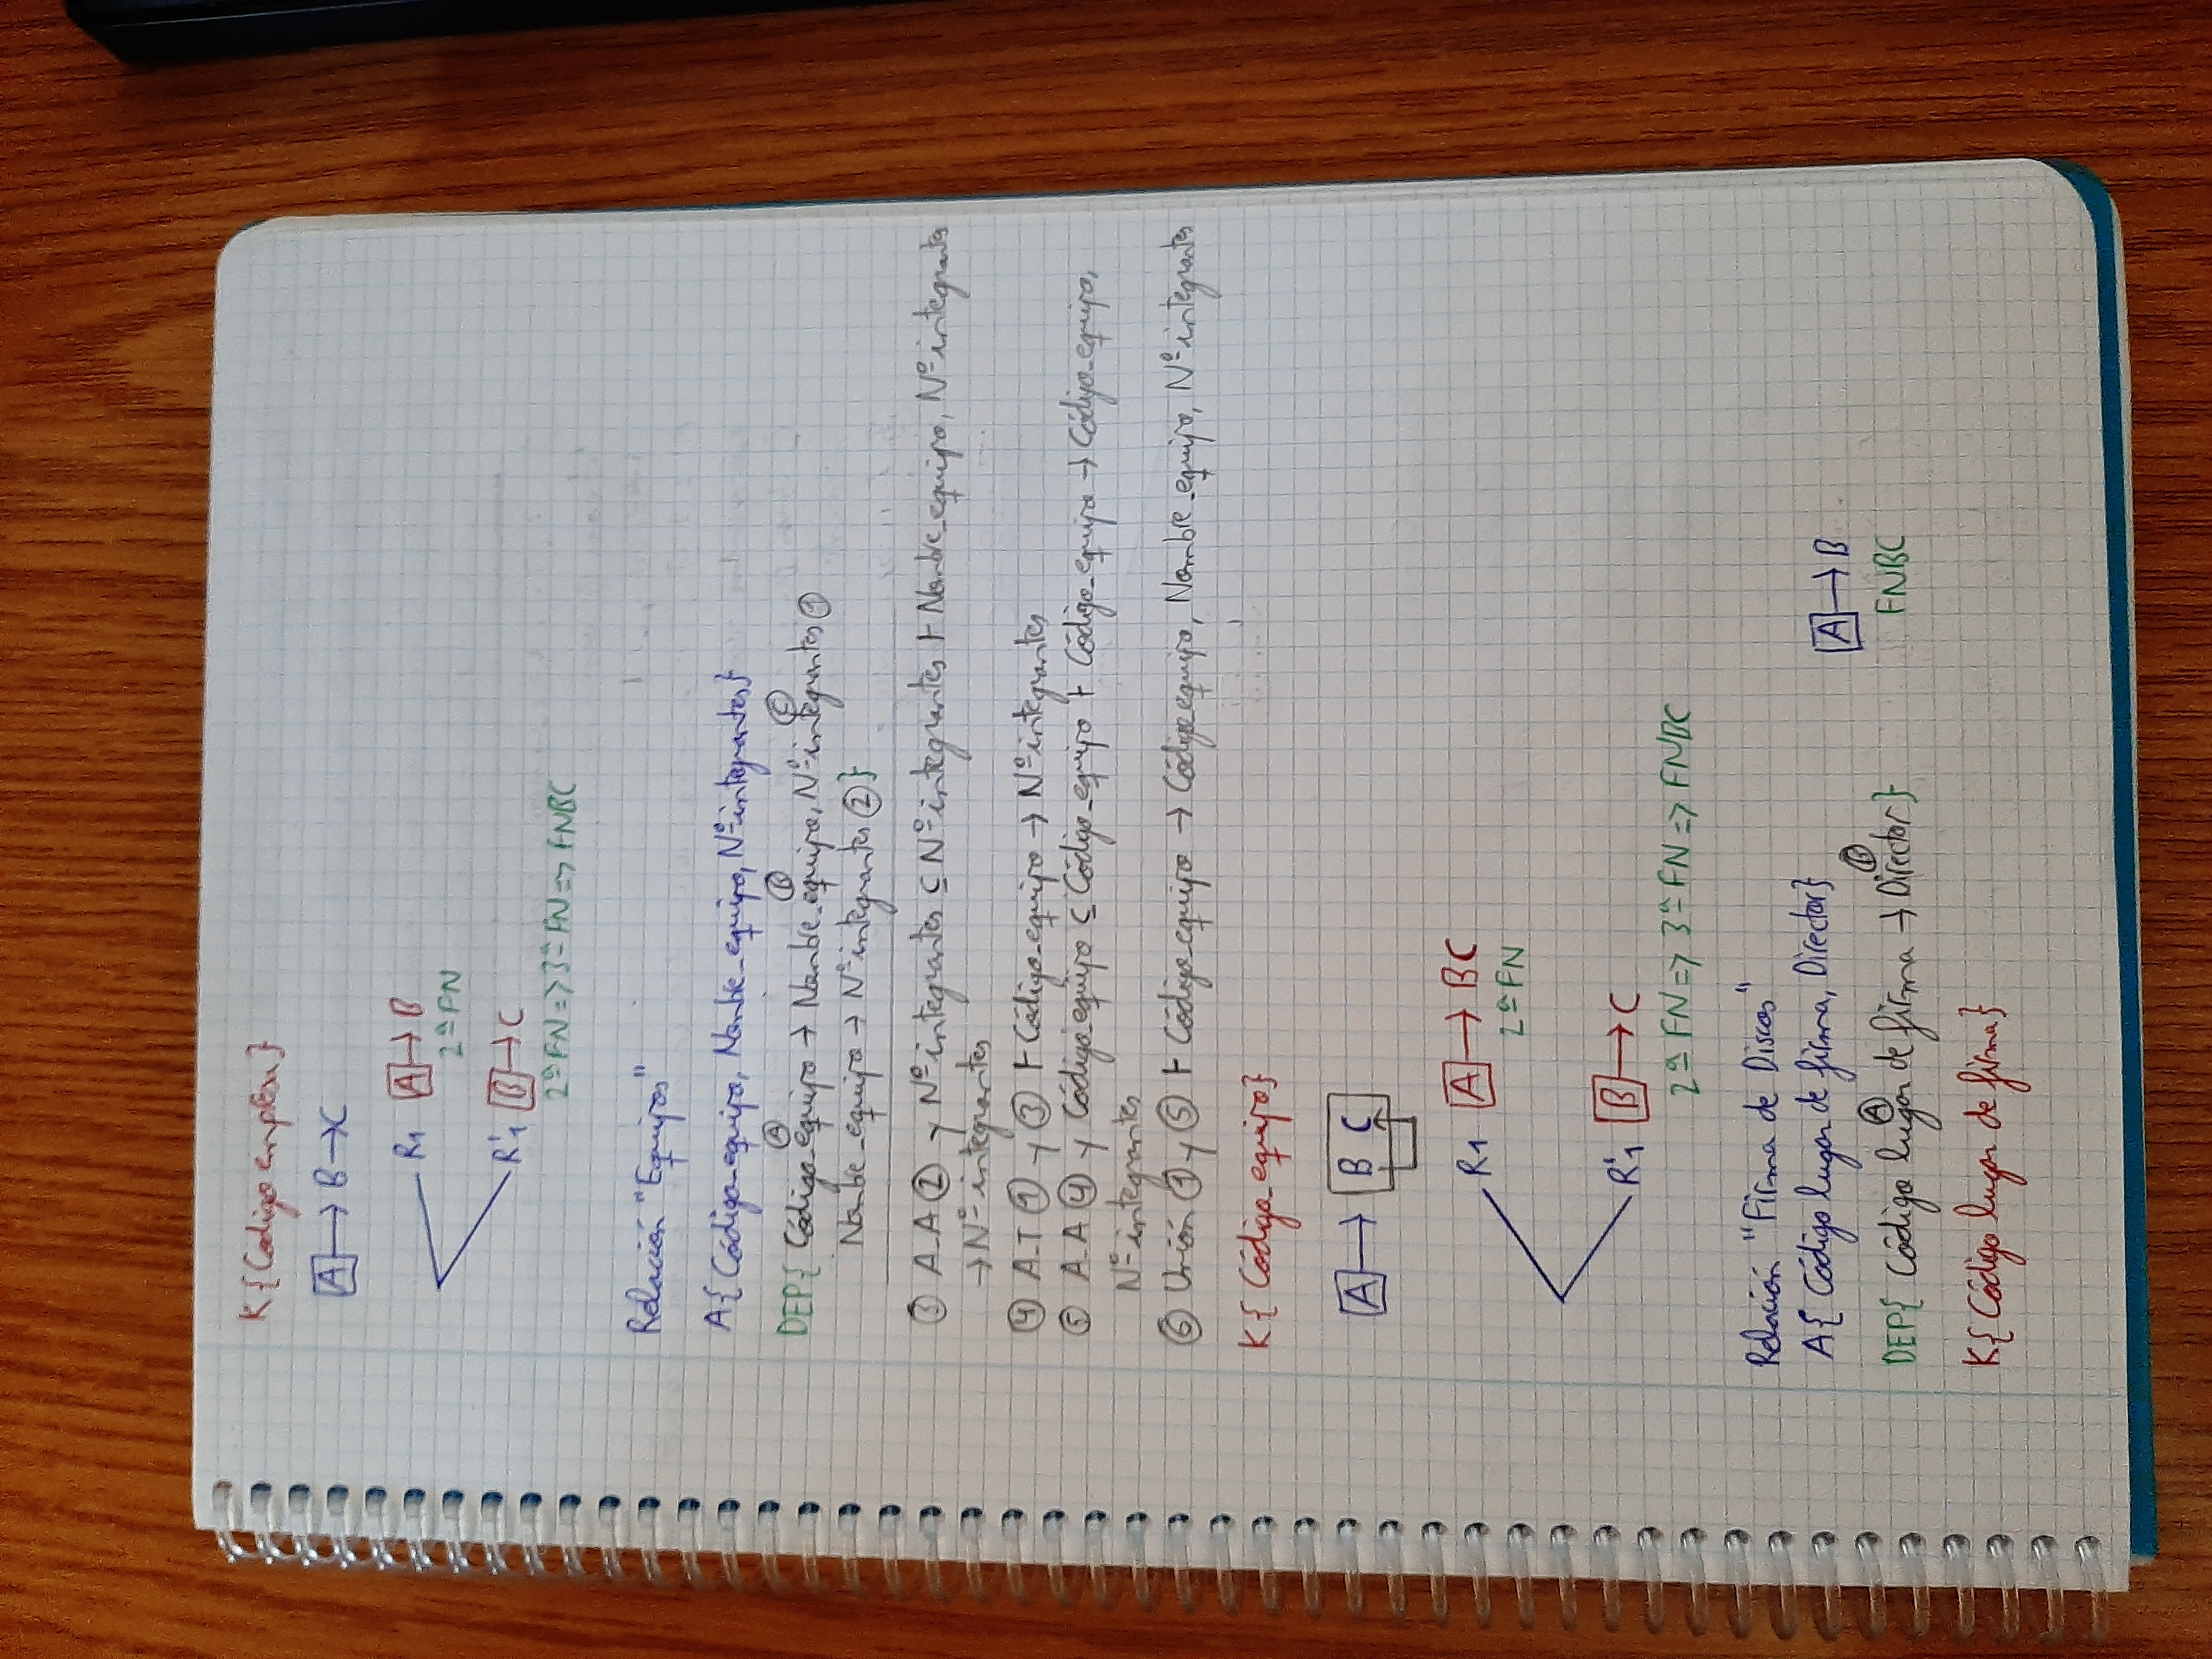 K{Codigo empresa}
A → B → C
R1 A → B
2ª FN
R'1 B → C
2ª FN => 3ª FN => FNBC
Relación "Equipos"
A{Código_equipo, Nombre_equipo, Nº integrantes}
A B C
DEP{ Código_equipo → Nombre_equipo, Nº integrantes ①
Nombre_equipo → Nº integrantes ② }
③ A.A ② y Nº integrantes ⊆ Nº integrantes ⊢ Nombre_equipo, Nº integrantes
→ Nº integrantes
④ A.T ① y ③ ⊢ Código_equipo → Nº integrantes
⑤ A.A ④ y Código_equipo ⊆ Código_equipo ⊢ Código_equipo → Código_equipo,
Nº integrantes
⑥ Unión ① y ⑤ ⊢ Código_equipo → Código_equipo, Nombre_equipo, Nº integrantes
K{ Código_equipo}
A → B C
R1 A → BC
2ª FN
R'1 B → C
2ª FN => 3ª FN => FNBC
Relación "Firma de Discos"
A{ Código lugar de firma, Director}
A → B
A B
DEP{ Código lugar de firma → Director}
FNBC
K{Código lugar de firma}